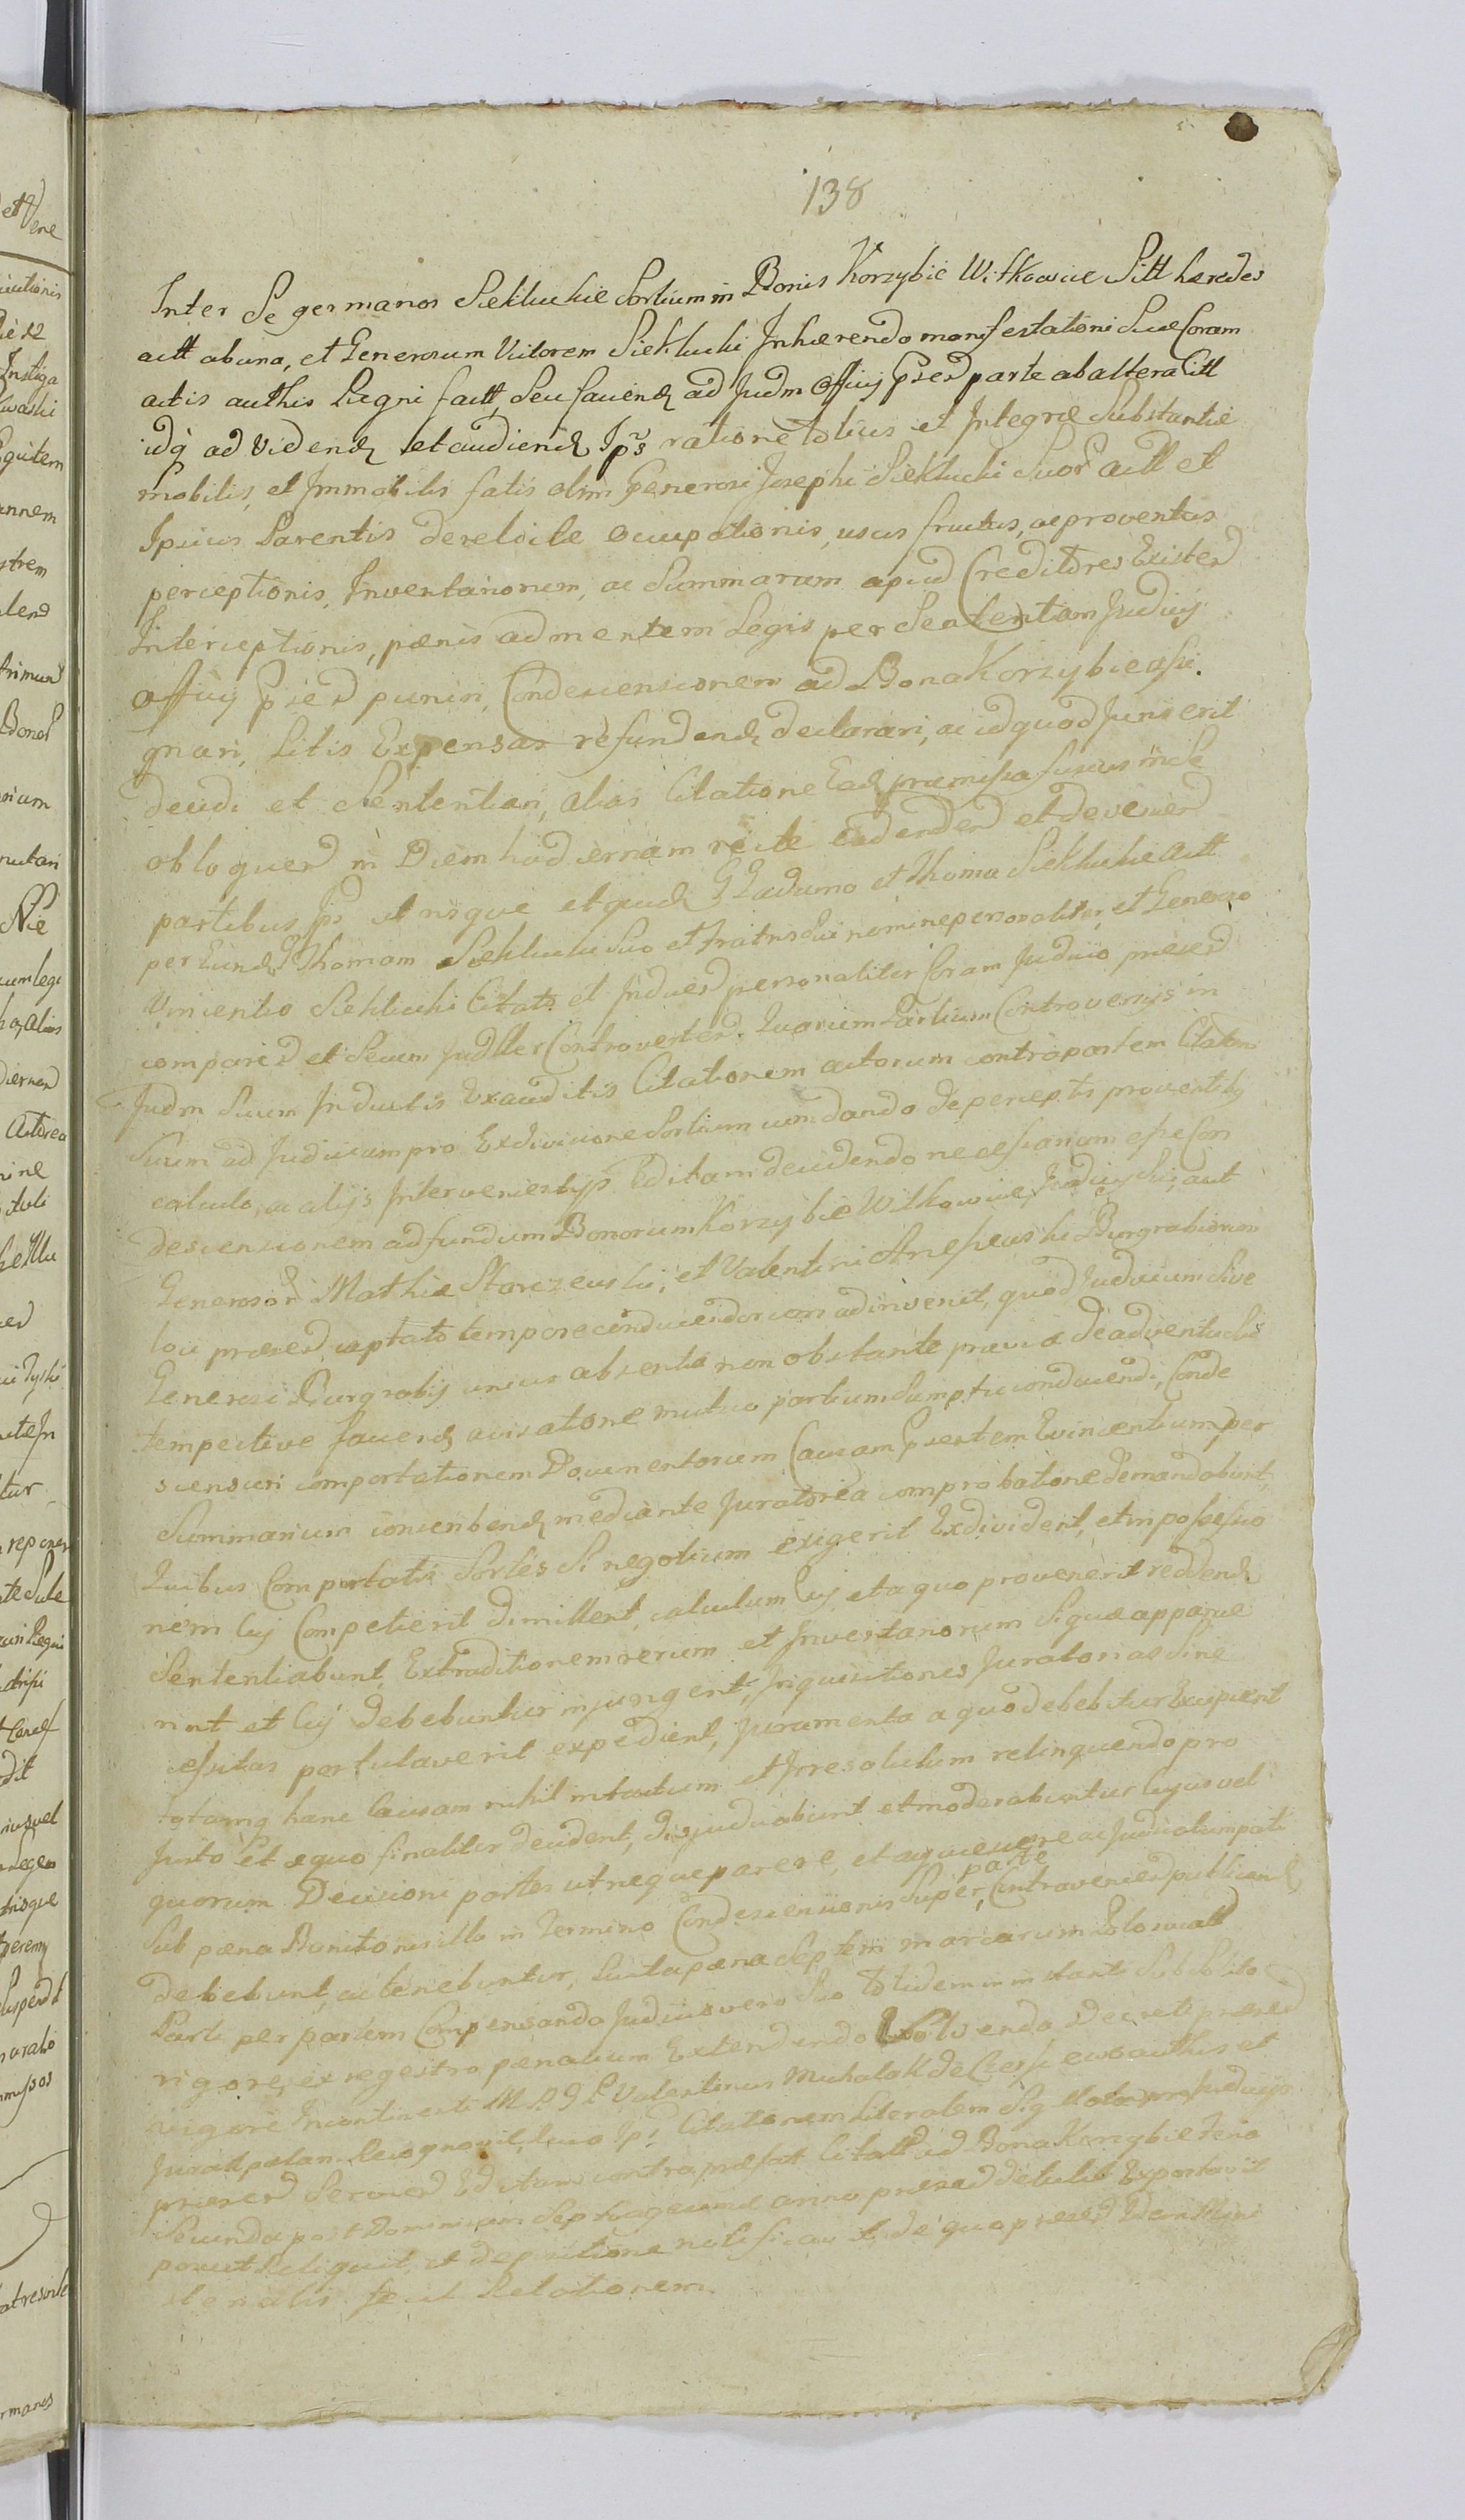 138
Inter Se germanos Siekluckie Sortium in Bonis Korzybie Witkowice Sitt haeredes
actt ab una, et Generosum Victorem Sieklucki Inhaerendo manifestationi Suae Coram
actis authis Regni factt, Seu faciend ad Judm Officij Praesd parte ab altera Citt
idq ad Videnđ et audiend Ips ratione totius et Integrae Substantiae
mobilis, et Immobilis fatis olim Generosi Josephi Sieklucki Suor actt et
Ipsius Parentis derelictae occupationis, usus fructus, ac proventus
perceptionis, Inventariorum, ac Summarum apud Creditores Existend
Interceptionis, paenis ad mentem Legis per Sententiam Judicij
Officij Praesd puniri, Condescensionem ad Bona Korzybie assi.
gnari, Litis Expensas refundend declarari, ac id quod Juris erit
decidi et Sententiari, alias Citatione Ead praemissa fusius in Se
obloquend in Diem hodiernam rite cadended et devenied
partibus Ips utrisque et quid GG Adamo et Thoma Siekluckie actt
per Eund Thomam Sieklucki Suo et fratris Sui nomine personaliter, et Generoso
Vincentio Sieklucki Citato et Inducd personaliter Coram Judicio praesd
compared et Secum Judtter Controverted. Quarum Partium Controversijs in
Judm Suum Inductis Exauditis Citationem actorum contra partem Citatam
Suum ad Judicium pro Exdivisione Sortium cum dando de perceptis proventibq
calculo, ac alijs Intervenientijs Editam decidendo necessariam esse Con
descensionem ad fundum Bonorum Korzybie Witkowice, Judicij Sui, aut
Generosor Mathiae Starczewski, et Valentini Burgrabiorum
loci praesd captato tempore conducendorum adinvenit, quod Judicium Sive
Generosi Burgrabij unius absentia non obstante praevia de adventu Suo
tempestive faciend avisatione mutuo partium Sumptu conducendi, Conde
scensuri comportationem Documentorum Causam Praesentem Evincentium per
Summarium conscribend mediante Juratorea comprobatione demandabunt,
Quibus Comportatis Sortes Si negotium exigerit Exdivident, et in possessio
nem Cuj Competierit dimittent, calculum Cuj et a quo provenerit reddend
Sententiabunt, Extraditionem rerum et Inventariorum Si quae apparue
rint et Cuj debebuntur injungent, Inquisitiones Juratorias Si ne
cessitas postulaverit expedient, Juramenta a quo debebitur Excipient
totamq hanc Causam nihil intactum et Irresolutum relinquendo pro
Justo et aequo finaliter decident, disjudicabunt et moderabuntur Cujus vel
quorum Decisioni partes utraeque parere, et acquiescere ac Judicatum pati
Sub paena Banitionis illo in termino Condescensionis Super parte Contravenied publicand
debebunt, ac tenebuntur, Luita paena Septem marcarum Polonicall
Parti per partem Compensanda Judicio vero Suo totidem in instanti Sub Solito
rigore, ex regestro paenalium Extendendo Exolvenda, Decreti praesd
vigore Incontinenti M. D. G. P Valentinus Michalak de authus et
Jurat palam Recognovit, quia Ips Citationem Literalem Sig
praesed Servied Editam contra praefat Citatt ad Bona Korzybie feria
Secunda post Dominicam Septuagesimae anno praesed detulit Exportavit
posuit Reliquit, et depositione notificavit, de quo praesd Idem Mini
sterialis fecit Relationem.